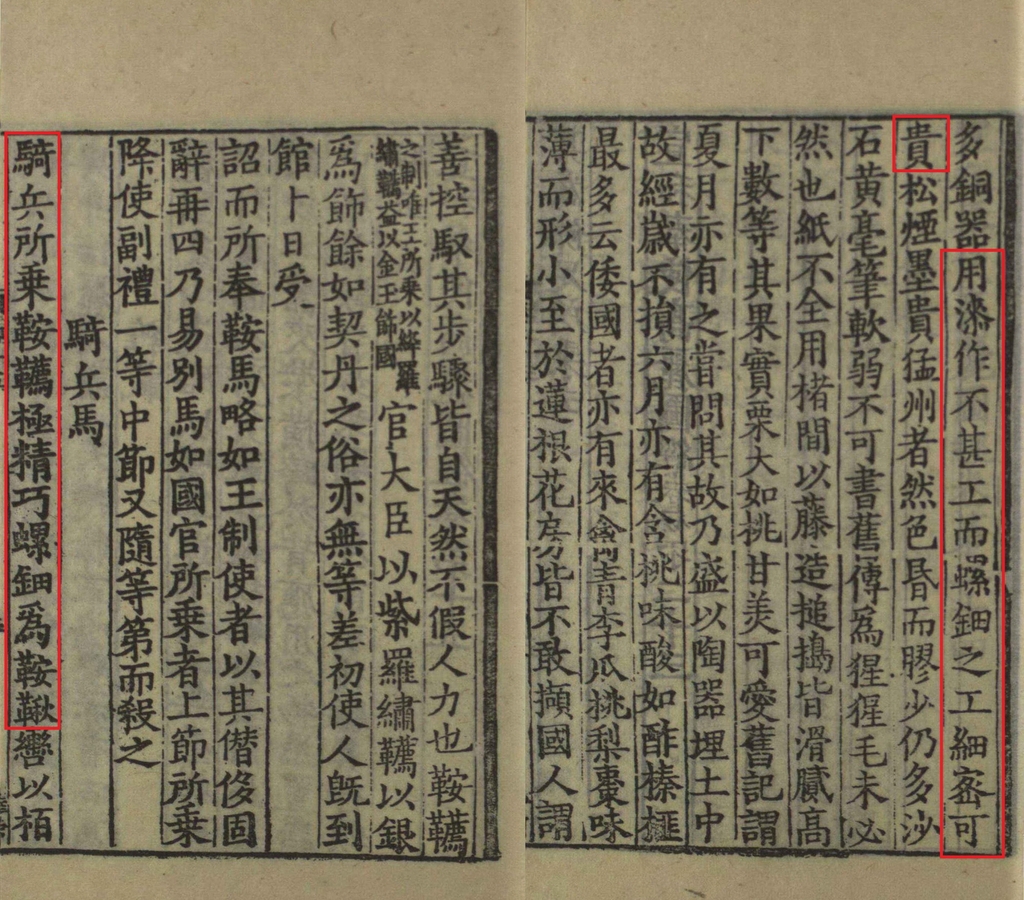 多銅器用漆作不甚工而螺鈿之工細密可
貴松煙墨貴猛州者然色昏而膠少仍多沙
石黃毫筆軟弱不可書舊傳為猩猩毛未必
然也紙不全用楮間以藤造搥搗皆滑膩高
下數等其果實栗大如桃甘美可愛舊記謂
夏月亦有之嘗問其故乃盛以陶器埋土中
故經歲不損六月亦有含桃味酸如酢榛榧
最多云倭國者亦有來禽青李瓜桃梨棗味
薄而形小至於蓮根花房皆不敢擷國人謂
善控馭其步驟皆自天然不假人力也鞍韉
之制唯王所乘以絳羅
繡韉益以金玉飾國
官大臣以紫羅繡韉以銀
爲飾餘如契丹之俗亦無等差初使人旣到
館卜日受
詔而所奉鞍馬略如王制使者以其僭侈固
辭再四乃易別馬如國官所乘者上節所乘
降使副禮一等中節又隨等第而殺之
騎兵馬
騎兵所乘鞍韉極精巧螺鈿爲鞍鞦轡以栢